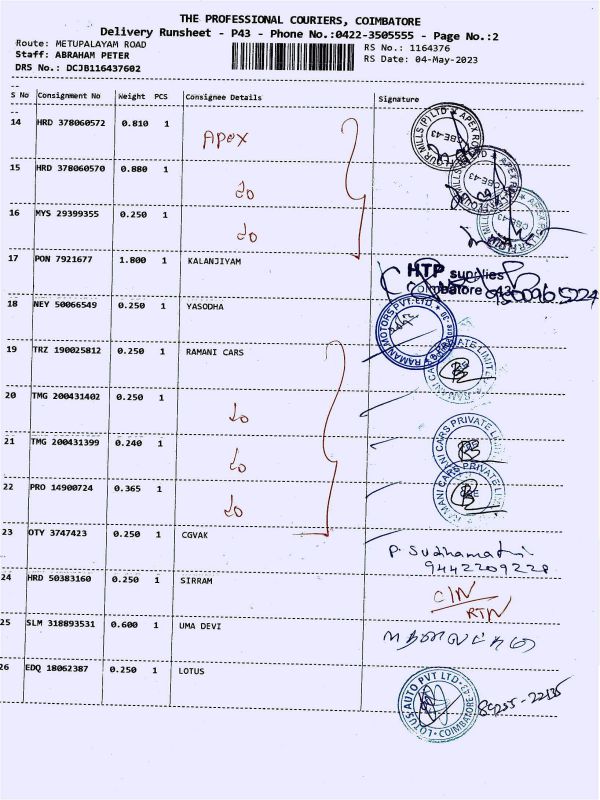 THE PROFESSIONAL COURIERS, COIMBATORE
Delivery Runsheet - P43 - Phone No.:0422-3505555 - Page No.:2
Route: METUPALAYAM ROAD
RS No.: 1164376
Staff: ABRAHAM PETER
RS Date: 04-May-2023
DRS No.: DCJB116437602
S No Consignment No Weight PCS Consignee Details Signature
14 HRD 378060572 0.810 1 APEX
15 HRD 378060570 0.880 1 do
16 MYS 29399355 0.250 1 do
17 PON 7921677 1.800 1 KALANJIYAM
HTP supplies
Coimbatore 43
18 NEY 50066549 0.250 1 YASODHA
RAMANI MOTORS PVT. LTD
19 TRZ 190025812 0.250 1 RAMANI CARS
RAMANI CARS PRIVATE LIMITED
20 TMG 200431402 0.250 1 do
21 TMG 200431399 0.240 1 do
RAMANI CARS PRIVATE LIMITED
22 PRO 14900724 0.365 1 do
RAMANI CARS PRIVATE LIMITED
23 OTY 3747423 0.250 1 CGVAK
P. Sudhamathi
9442209228
24 HRD 50383160 0.250 1 SIRRAM
C/N
RTN
25 SLM 318893531 0.600 1 UMA DEVI
26 EDQ 18062387 0.250 1 LOTUS
LOTUS AUTO PVT LTD COIMBATORE-43